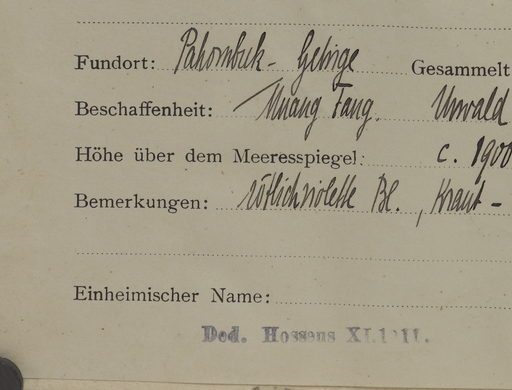 Fundort: Pahombuk- Gebirge Gesammelt
Beschaffenheit: Muang Fang. Urwald
Höhe über dem Meeresspiegel: c. 1900
Bemerkungen: rötlichviolette Bl., Kraut -
Einheimischer Name:
Ded. Hosseus XI.1911.